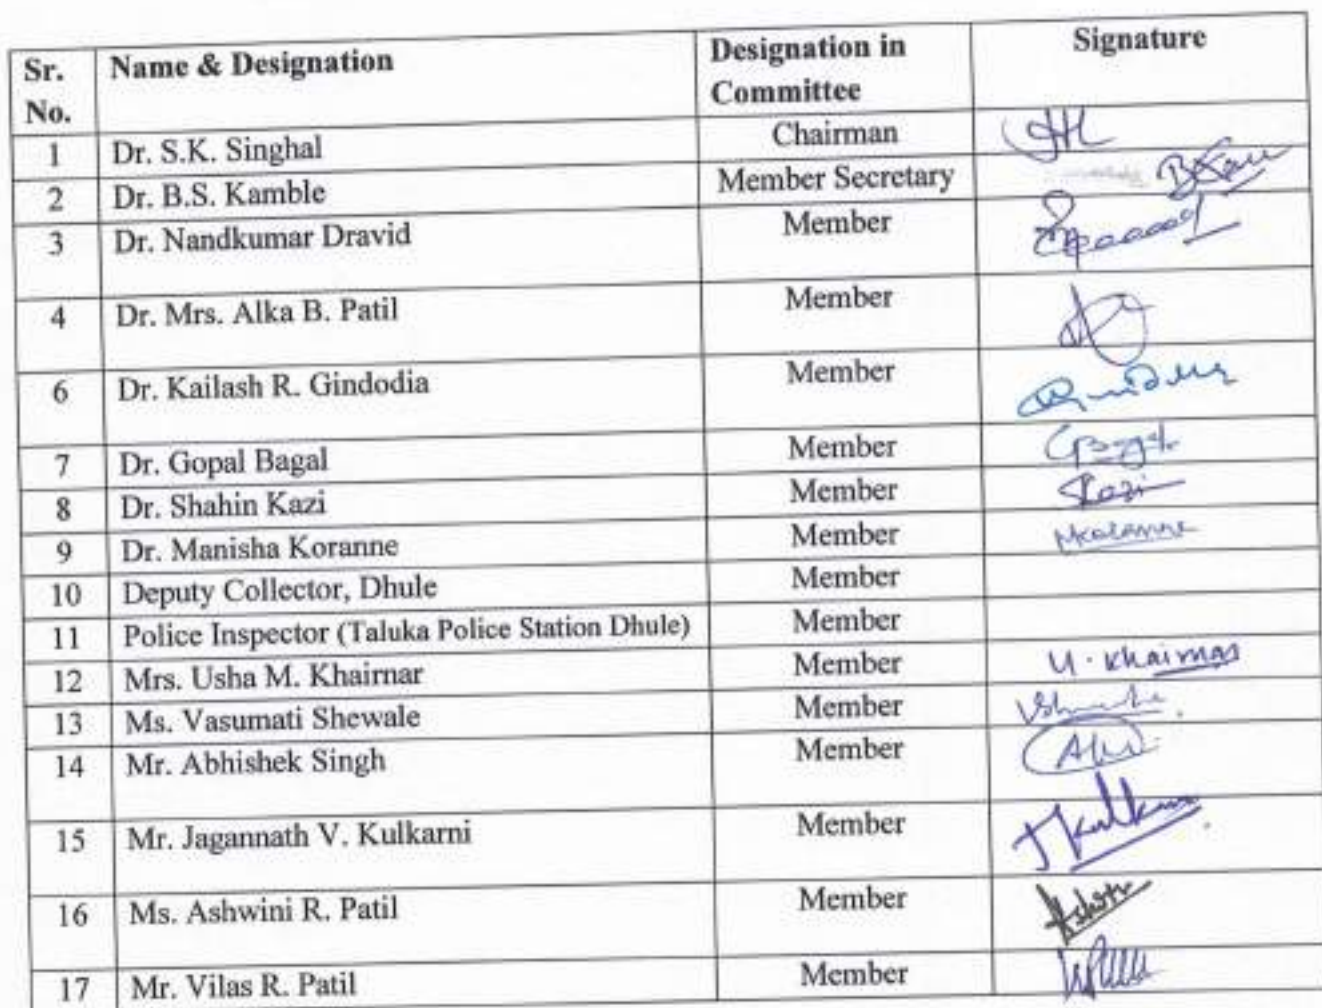 Sr. No. Name & Designation Designation in Committee Signature
1 Dr. S.K. Singhal Chairman
2 Dr. B.S. Kamble Member Secretary
3 Dr. Nandkumar Dravid Member
4 Dr. Mrs. Alka B. Patil Member
6 Dr. Kailash R. Gindodia Member
7 Dr. Gopal Bagal Member
8 Dr. Shahin Kazi Member Kazi
9 Dr. Manisha Koranne Member
10 Deputy Collector, Dhule Member
11 Police Inspector (Taluka Police Station Dhule) Member
12 Mrs. Usha M. Khairnar Member U. Khairnar
13 Ms. Vasumati Shewale Member
14 Mr. Abhishek Singh Member
15 Mr. Jagannath V. Kulkarni Member
16 Ms. Ashwini R. Patil Member
17 Mr. Vilas R. Patil Member